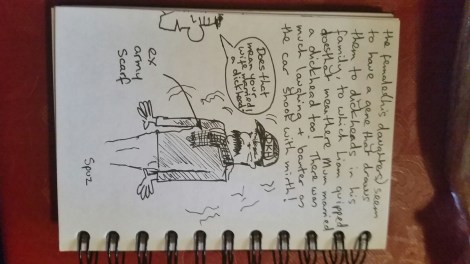 the females(his daughters) seem
to have a gene that draws
them to dickheads in his
family, to which Liam quipped
does that mean there Mum married
a dickhead too! There was
much laughing + banter an
the car shook with mirth!
Does that
mean your
wife married
a dickhead!
ex
army
scarf